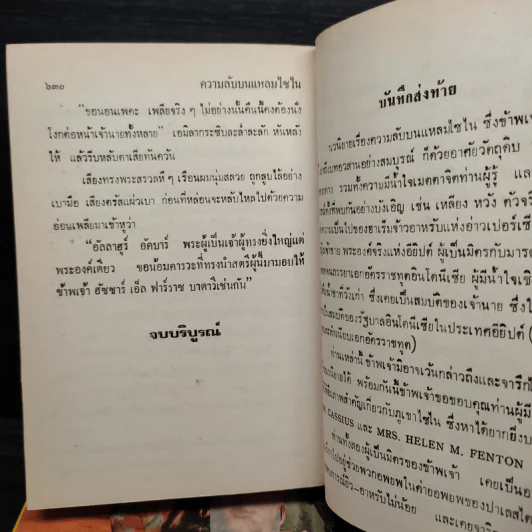 ๖๓๑ ความลับบนแหลมไซไน
"ขอนอนเพคะ เพลียจริง ๆ ไม่อย่างนั้นคืนนี้คงต้องนั่ง
โงกต่อหน้าเจ้านายทั้งหลาย" เอมิลากระซิบละล่ำละลัก หันหลัง
ให้ แล้วรีบหลับตาเสียทันควัน
เสียงทรงพระสรวลที่ ๆ เรือนผมนุ่มสลวย ถูกลูบไล้อย่าง
เบามือ เสียงตรัสแผ่วเบา ก่อนที่หล่อนจะหลับใหลไปด้วยความ
อ่อนเพลียมาเข้าหูว่า
"อัลลาฮูร์ อัคบาร์ พระผู้เป็นเจ้าผู้ทรงยิ่งใหญ่แต่
พระองค์เดียว ขอน้อมคารวะที่ทรงนำสตรีผู้นี้มามอบให้
ข้าพเจ้า ฮัซซาร์ เอ็ล ฟาร์ราช บาดาวีเช่นกัน"
จบบริบูรณ์
บันทึกส่งท้าย
นวนิยายเรื่องความลับบนแหลมไซไน ซึ่งข้าพเจ้
โยงถึงบทอวสานอย่างสมบูรณ์ ก็ด้วยอาศัยวัตถุดิบ
รวมทั้งความมีน้ำใจเมตตาจิตท่านผู้รู้ แ
ที่พบกันอย่างบังเอิญ เช่น เหลียง หวัง ตัวจริ
ความเป็นไปของฮาเร็มจ้าวอาหรับแห่งอ่าวเปอร์เซี
พระองค์จริงแห่งอียิปต์ ผู้เป็นมิตรกับมารด
ภรรยาเอกอัครราชทูตอินโดนีเซีย ผู้มีน้ำใจเชิ
ที่วังเก่า ซึ่งเคยเป็นสมบัติของเจ้านาย ซึ่งใ
เป็นสมบัติของรัฐบาลอินโดนีเซียในประเทศอียิปต์ (
ทำเนียบเอกอัครราชทูต)
ท่านเหล่านี้ ข้าพเจ้ามิอาจเว้นกล่าวถึงและจารึกไ
นิยายได้ พร้อมกันนี้ข้าพเจ้าขอขอบคุณท่านผู้มี
ภาพสำคัญเกี่ยวกับภูเขาไซไน ซึ่งหาได้ยากยิ่ง
CASSIUS และ MRS. HELEN M. FENTON
ท่านทั้งสองผู้เป็นมิตรของข้าพเจ้า เคยเป็น
ไปอยู่ช่วยพวกอพยพในค่ายอพยพของปาเลสไต
ยิว-อาหรับไม่น้อย และเคย